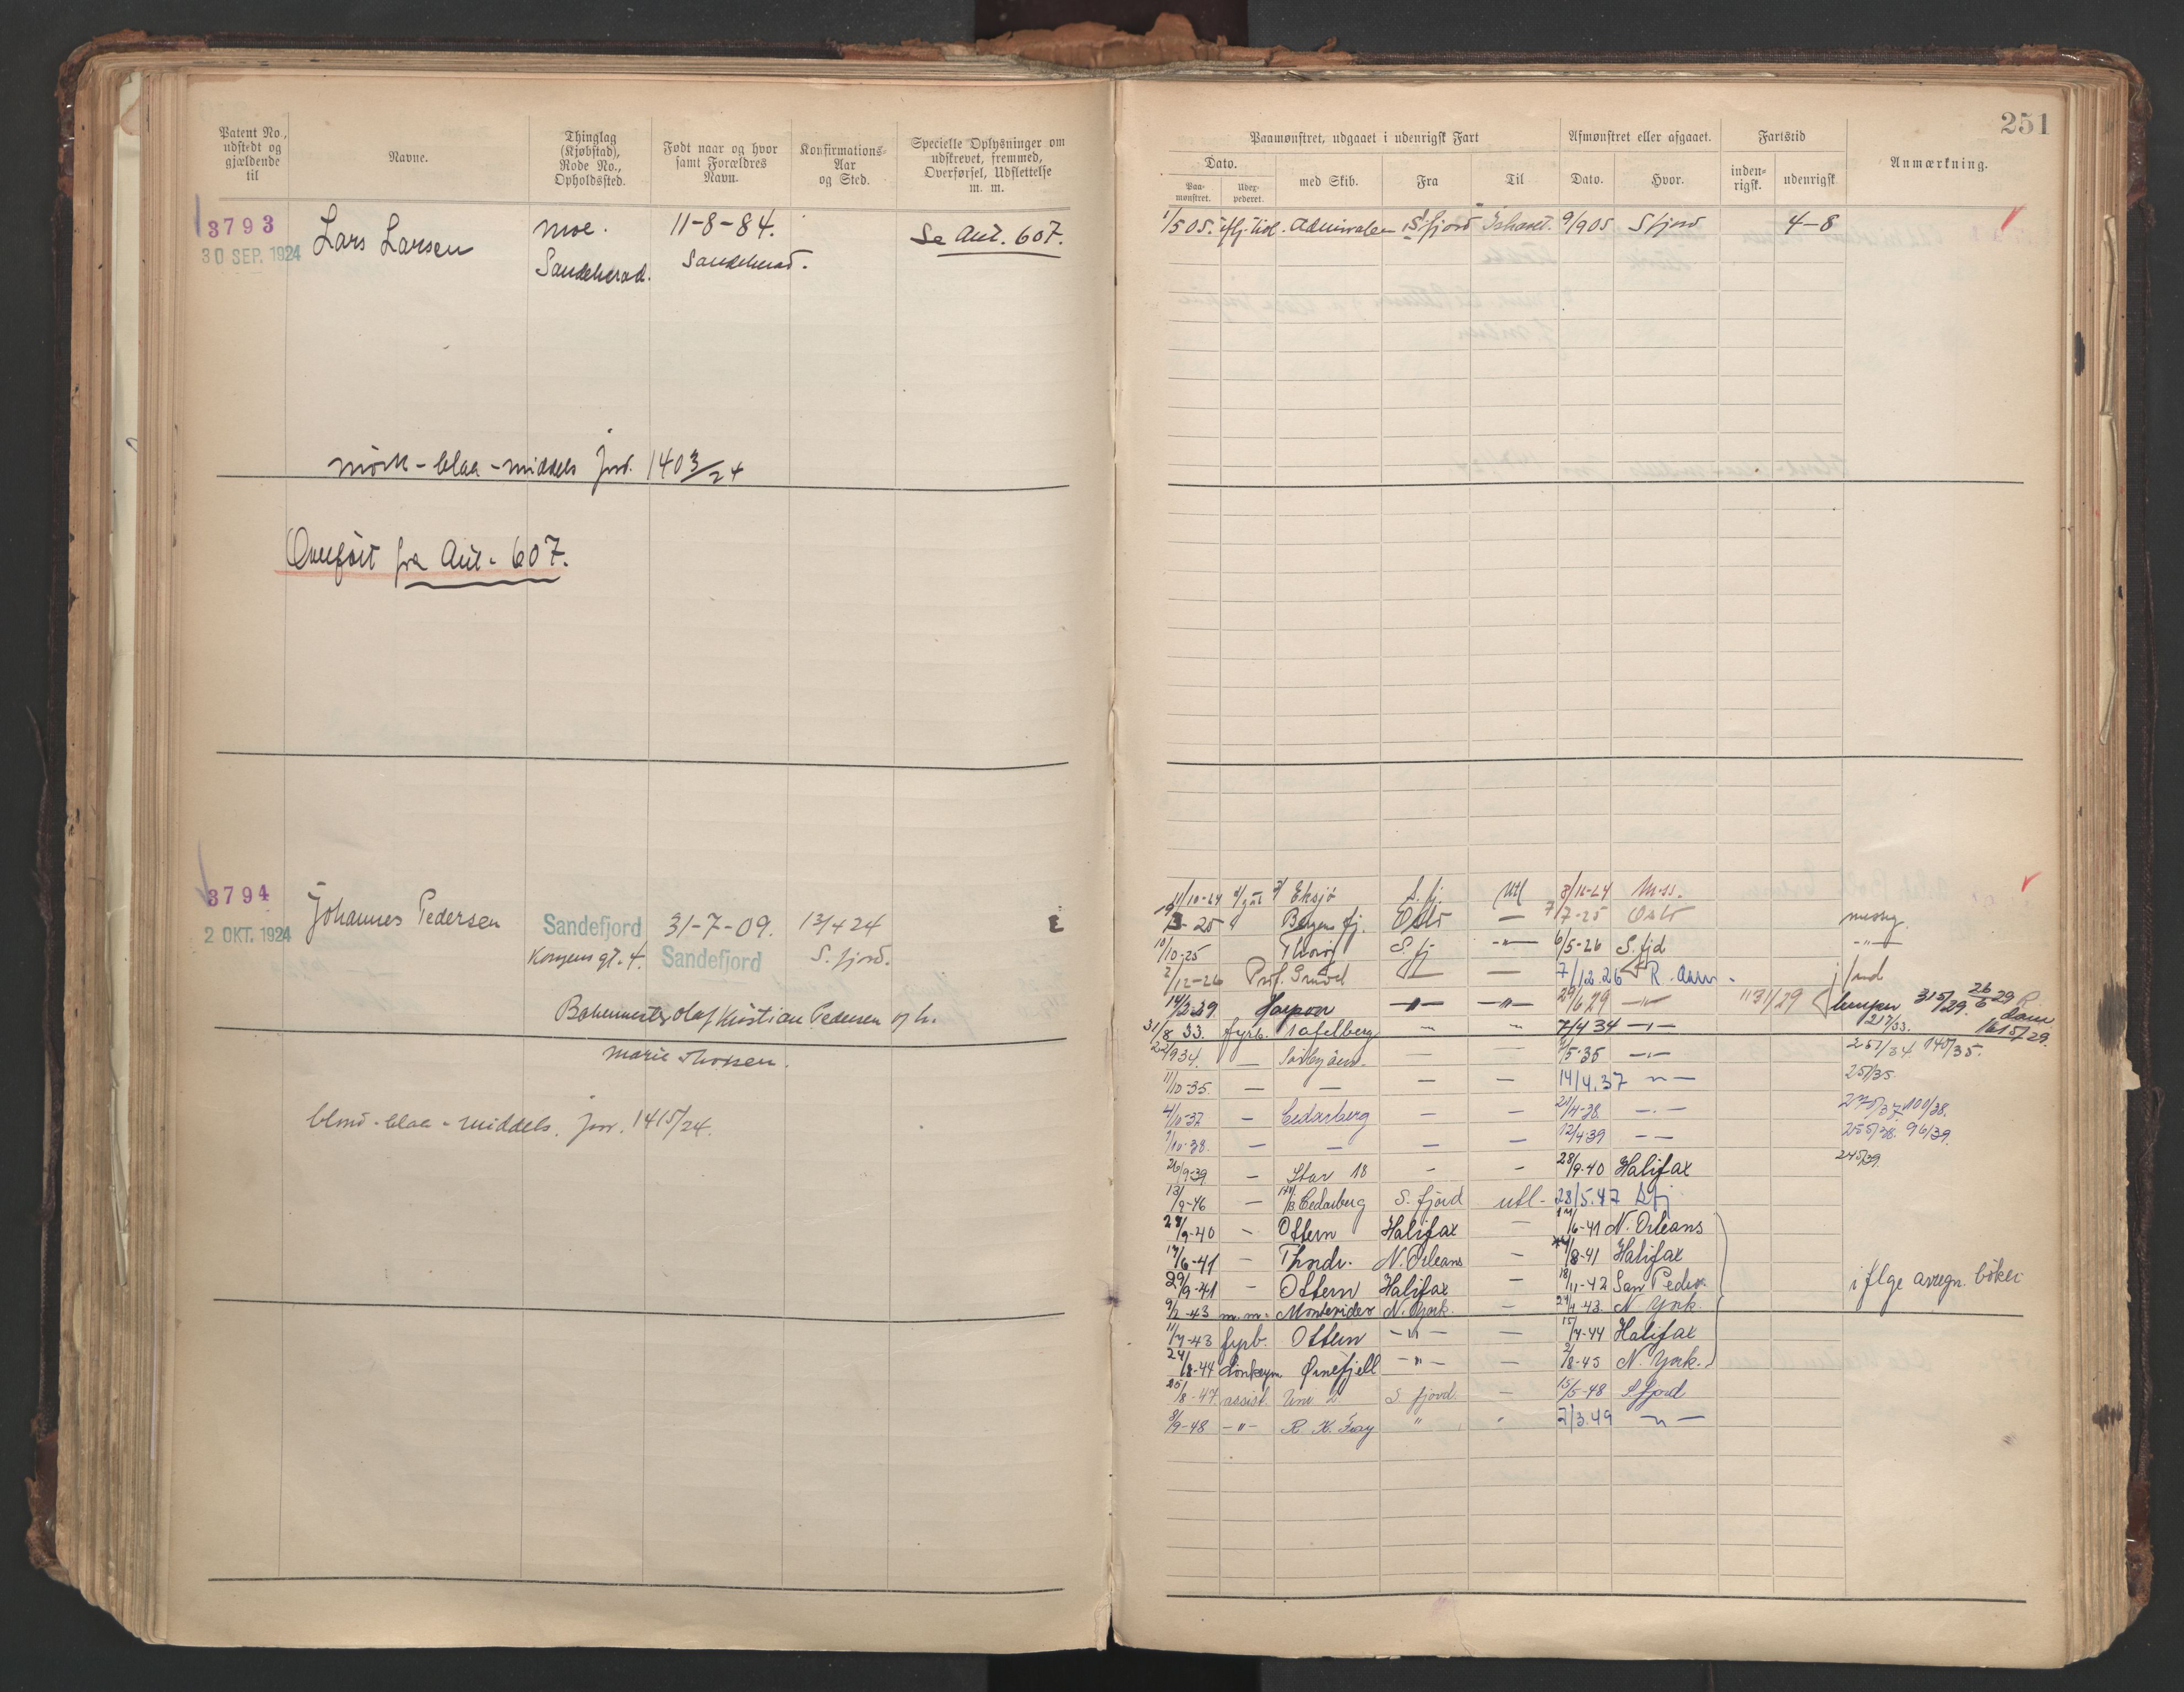 251
Patent No., udstedt og gjældende til
Navne.
Thinglag (Kjøbstad), Rode No., Opholdssted.
Født naar og hvor samt Forældres Navn.
Konfirmations-Aar og Sted.
Specielle Oplysninger om udskrevet, fremmed, Overførsel, Udslettelse m. m.
Paamønstret, udgaaet i udenrigsk Fart
Dato.
Paa-mønstret.
med Skib.
Fra
Til
Afmønstret eller afgaaet.
Dato.
Hvor.
Fartstid
inden-rigsk.
udenrigsk
Anmærkning.
3793
30 SEP. 1924
Lars Larsen
Moe.
Sandeherad.
11-8-84.
Sandeherad.
Se Ant. 607.
1/5 05. Admiralen S.fjord Ishavet. 9/9 05 Sfjord 4-8
mörk - blaa - middels jour. 1403/24
Overført fra Ant. 607.
3794
2 OKT. 1924
Johannes Pedersen
Sandefjord
Kongens gt. 4.
31-7-09.
Sandefjord
13/4 24
S. fjord.
Olaf Kristian Pedersen og h.
Marie Thorsen.
blond - blaa - middels. jour. 1415/24.
11/10-24 Eksjø S. fj. Utl
3-25 Bergensfj. Oslo — 7/7-25 Oslo
10/10-25 Thorøy S. fj -"- 6/5-26 S. fjd -"-
2/12-26 Prof. Gruvel — — 7/12.26
Harpon -"- -"- 29/6 29 -"- 1131/29 lemper 315/29.
31/8 33. fyrb. Tafelberg — — 7/4 34 -"- 217/33. 1615/29.
22/9 34. — — — /5-35 -"- 251/34 140/35.
11/10-35. — — — — 14/4.37 -"- 251/35
4/10-37 — Cedarberg — — 21/4-38 -"- 275/37 100/38.
1/10-38. — — — — 12/4 39 — 255/38. 96/39.
26/9-39 — Star 18 - - 28/9-40 Halifax 245/39.
13/9-46 — Cedarberg S. fjord utl - 28/5.47 Sfj
28/9-40 - Ottern Halifax — /6-41 N. Orleans
17/6-41 — Thodr. N. Orleans — /8-41 Halifax
29/9-41 - Ottern Halifax — 18/11-42 San Pedro.
9/2-43 m.m. Montevideo N. York. — N. York.
11/7-43 fyrb. Ottern -"- — 15/7-44 Halifax
24/8-44 donkeym Ørnefjell -"- — /8-45 N. York.
i flge avregn. bøker
25/8-47 assist. S fjord. — 15/5-48 Sfjord
8/9-48 -"- R. K. Fray " " 2/3.49 -"-